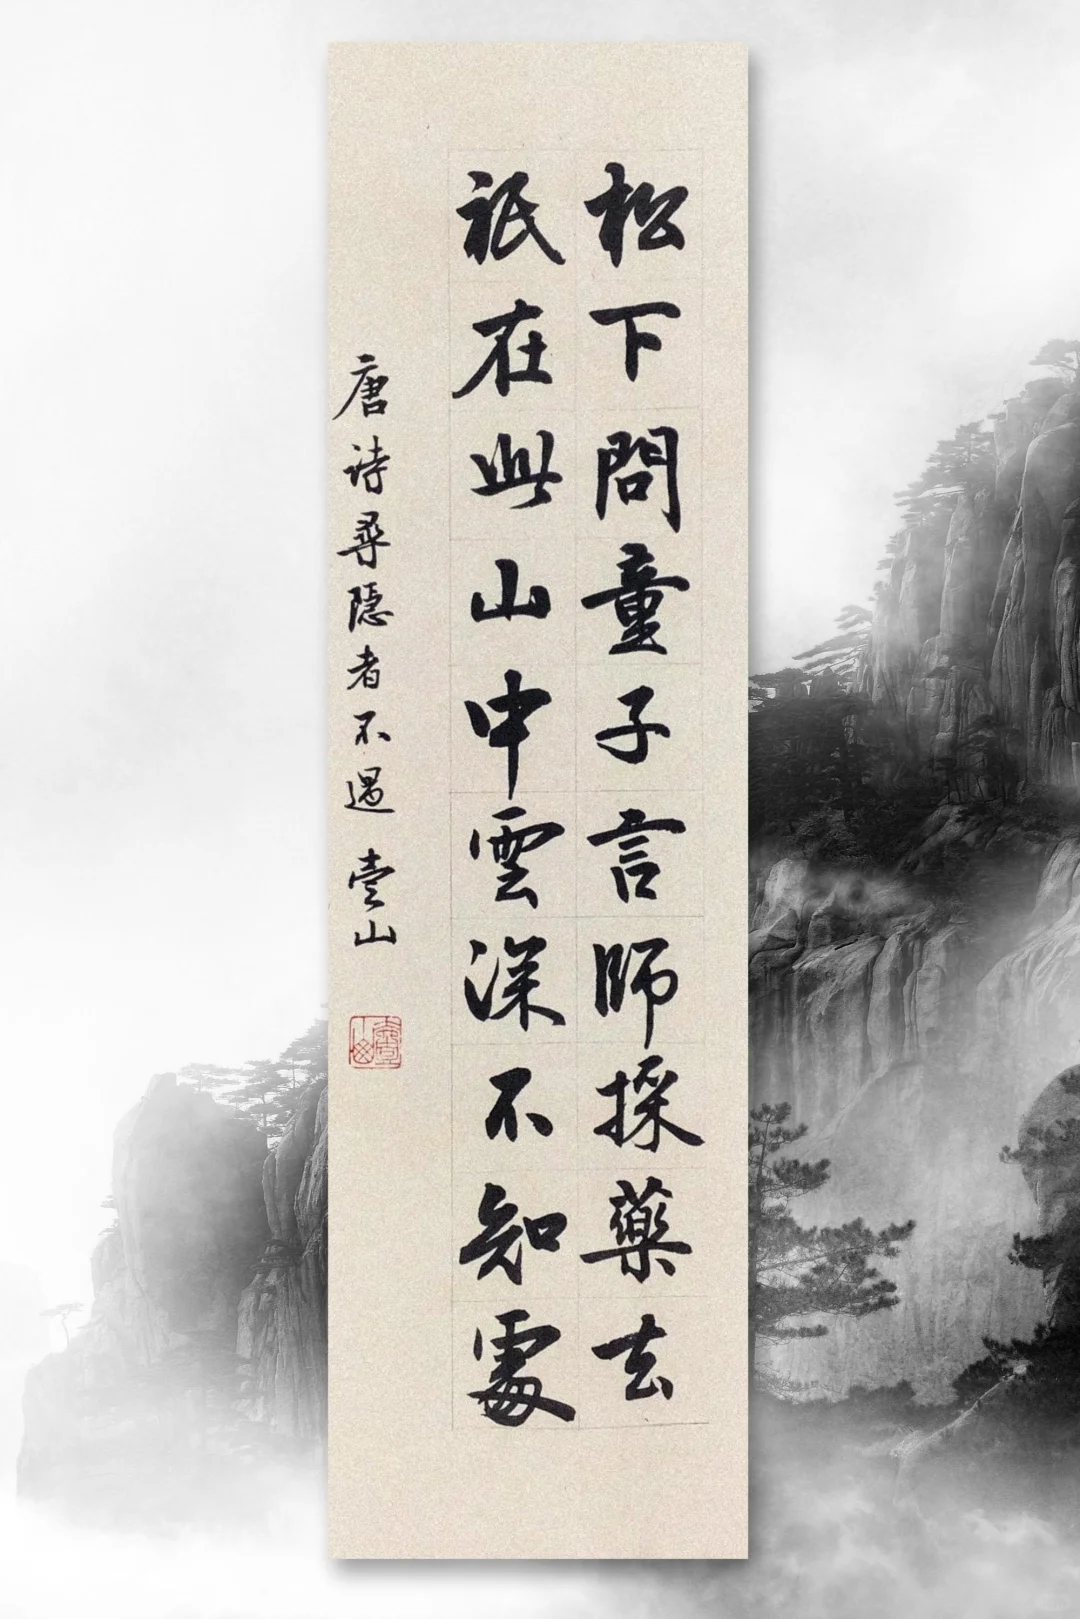 松下問童子言師採藥去
祇在此山中雲深不知處
唐詩尋隱者不遇 壹山